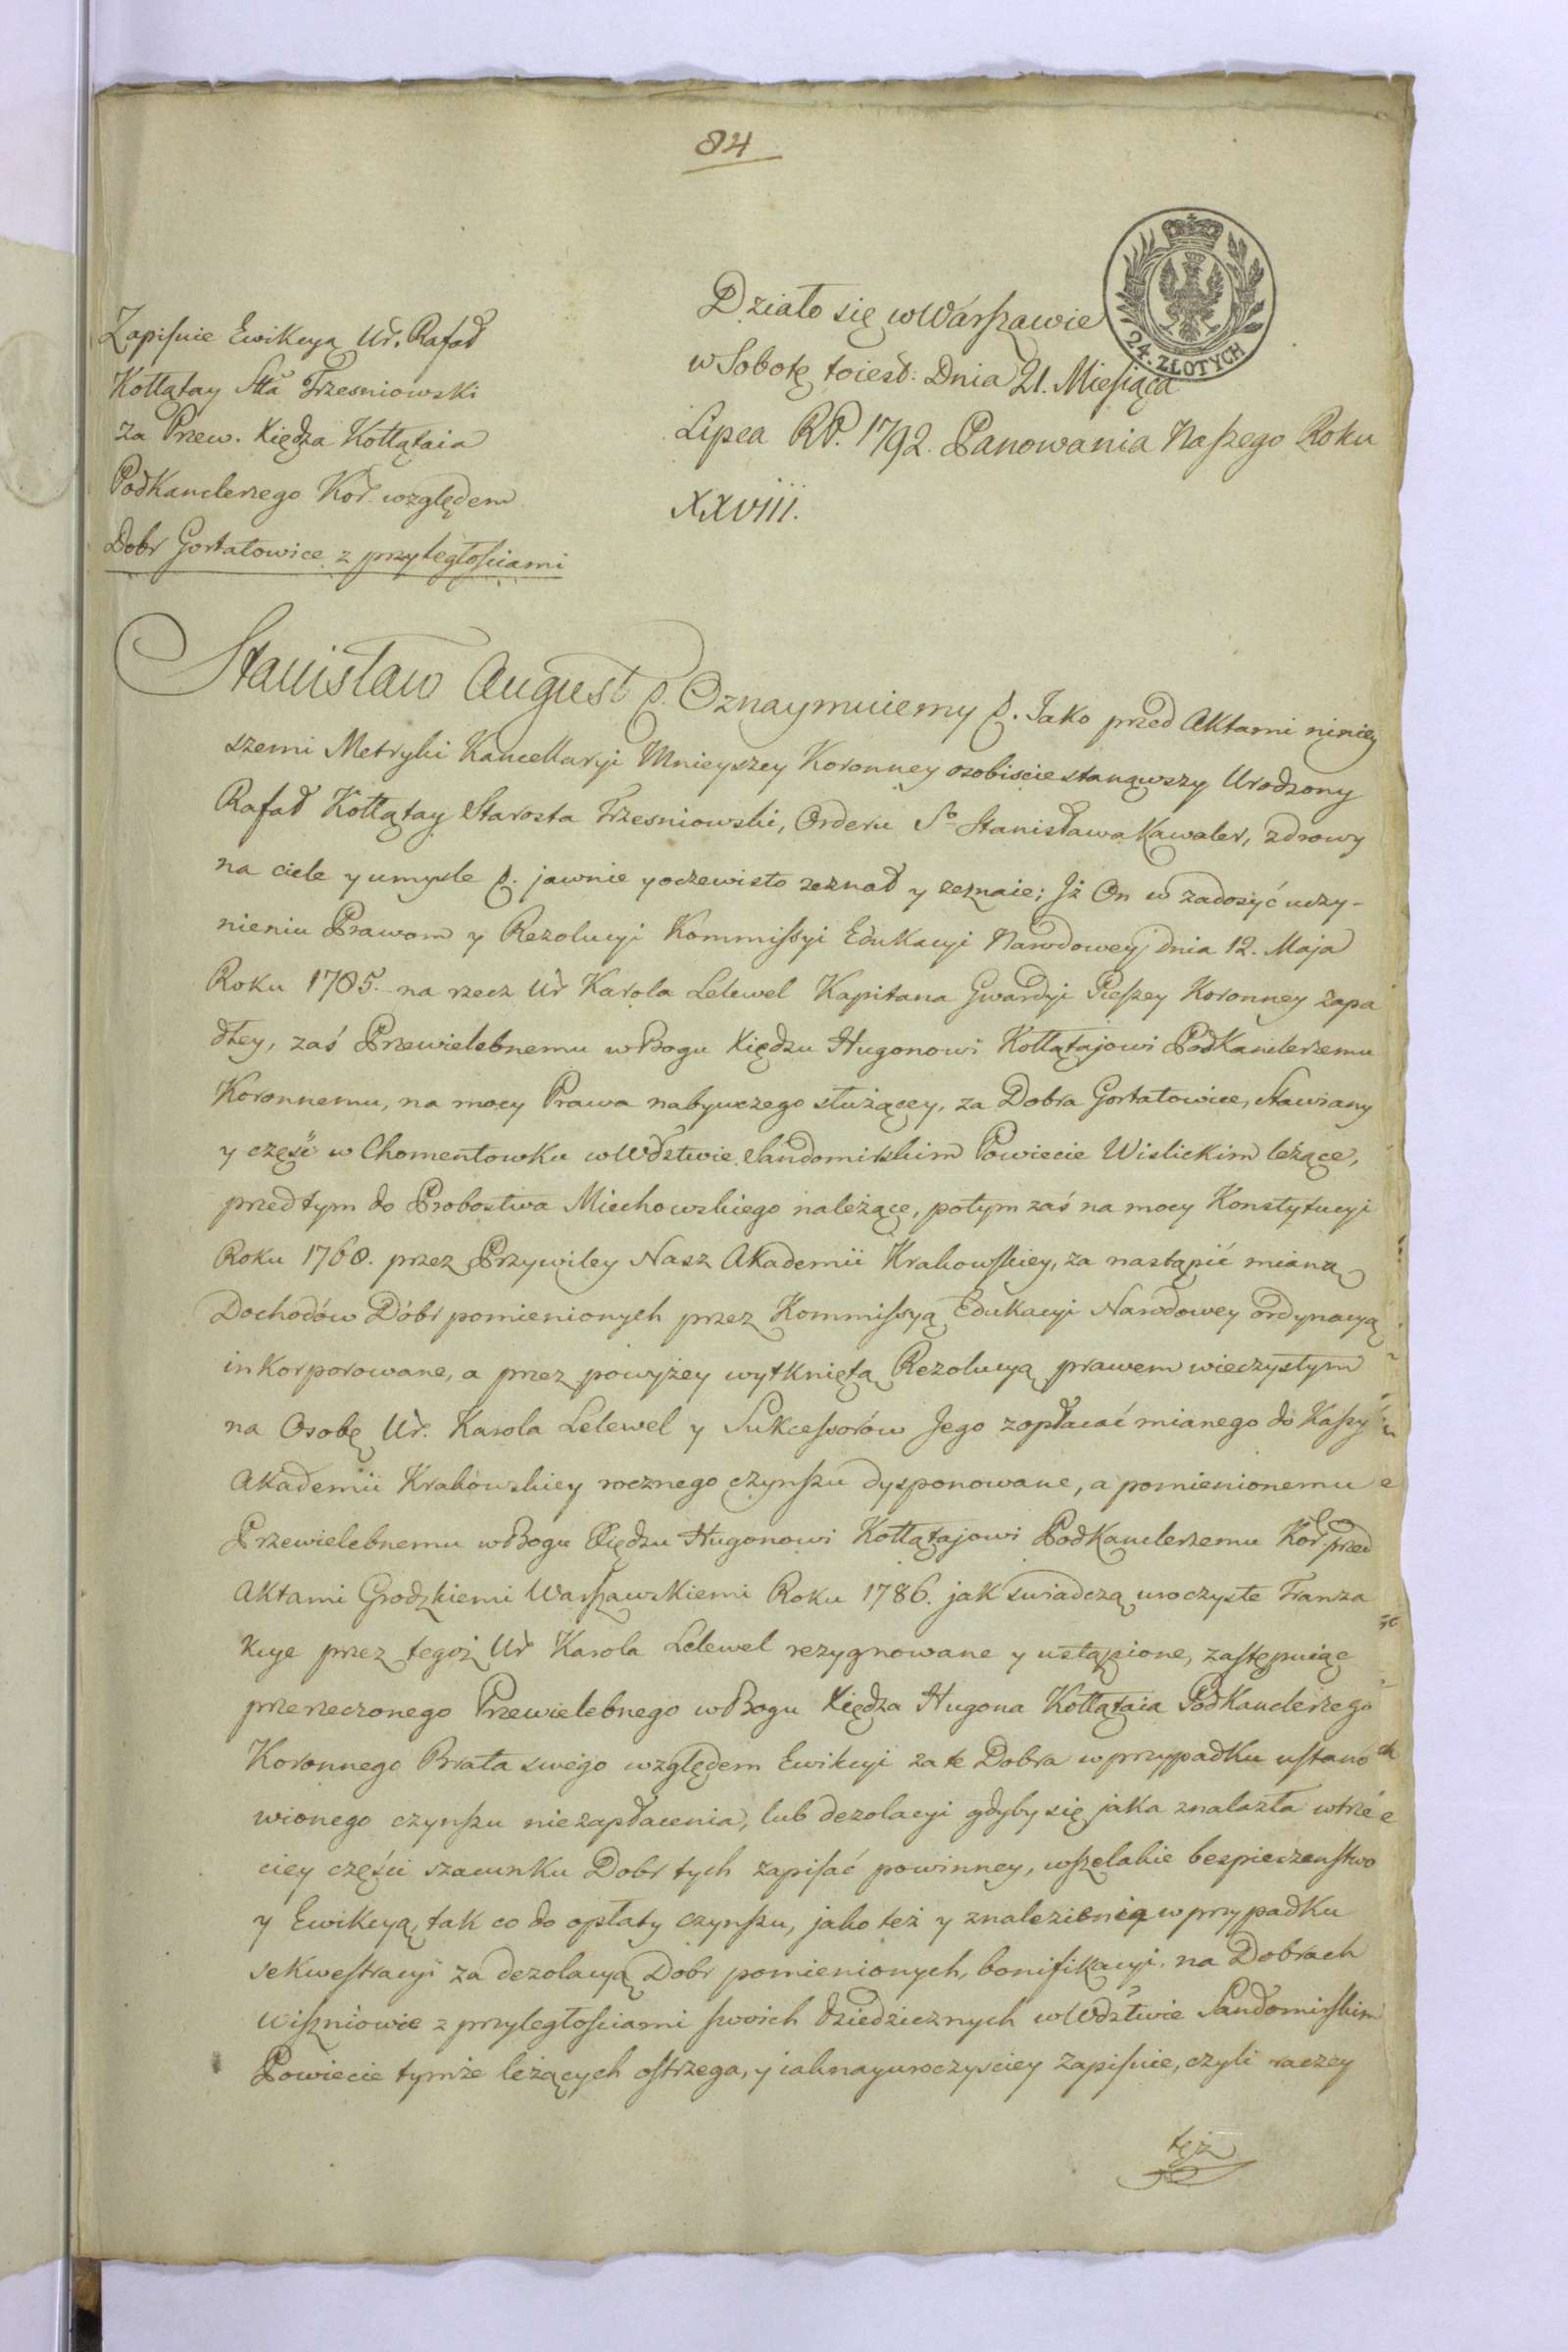 84
24. ZŁOTYCH
Zapisuie Ewikcyą Ur. Rafał
Kołłątay Stta Trzesniowski
za Przew. Xiędza Kołłątaia
Podkanclerzego Kor. względem
Dobr Gortatowice z przyległościami
Działo się w Warszawie
w Sobotę toiest: Dnia 21. Miesiąca
Lipca RP. 1792. Panowania Naszego Roku
XXVIII.
Stanisław August p. Oznaymuiemy p. Jako przed Aktami niniey
szemi Metryki Kancellaryi Mnieyszey Koronney osobiscie stanąwszy Urodzony
Rafał Kołłątay Starosta Trzesniowski, Orderu So Stanisława Kawaler, zdrowy
na ciele y umysle p. jawnie y oczewisto zeznał y zeznaie; Iż On w zadosyć uczy-
nieniu Prawom y Rezolucyi Kommissyi Edukacyi Narodowey dnia 12. Maja
Roku 1785. na rzecz Ur Karola Lelewel Kapitana Gwardyi Pieszey Koronney zapa
dłey, zaś Przewielebnemu w Bogu Xiędzu Hugonowi Kołłątajowi Podkanclerzemu
Koronnemu, na mocy Prawa nabywczego służącey, za Dobra Gortatowice, Stawiany
y część w Chomentowku w Wdztwie Sandomirskim Powiecie Wislickim leżące,
przedtym do Probostwa Miechowskiego należące, potym zaś na mocy Konstytucyi
Roku 1768. przez Przywiley Nasz Akademii Krakowskiey, za nastąpić mianą
Dochodów Dóbr pomienionych przez Kommissyą Edukacyi Narodowey ordynacyą
inkorporowane, a przez powyżey wytkniętą Rezolucyą prawem wieczystym
na Osobę Ur. Karola Lelewel y Sukcessorów Jego zopłacać mianego do Kassy
Akademii Krakowskiey rocznego czynszu dysponowane, a pomienionemu
Przewielebnemu w Bogu Xiędzu Hugonowi Kołłątajowi Podkanclerzemu Kor. przed
Aktami Grodzkiemi Warszawskiemi Roku 1786. jak swiadczą uroczyste Tranza
kcye przez tegoż Ur Karola Lelewel rezygnowane y ustąpione, zastępuiąc
przerzeczonego Przewielebnego w Bogu Xiędza Hugona Kołłątaia Podkanclerzego
Koronnego Brata swego względem Ewikcyi za te Dobra w przypadku ustano
wionego czynszu niezapłacenia, lub dezolacyi gdyby się jaka znalazła w trze
ciey części szacunku Dobr tych zapisać powinney, wszelakie bespieczenstwo
y Ewikcyą, tak co do opłaty czynszu, jako też y znalezienia w przypadku
sekwestracyi za dezolacyą Dobr pomienionych, bonifikacyi, na Dobrach
Wiszniowie z przyległościami swoich dziedzicznych w Wdztwie Sandomirskim
Powiecie tymże leżących ostrzega, y iaknayuroczysciey zapisuie, czyli raczey
też